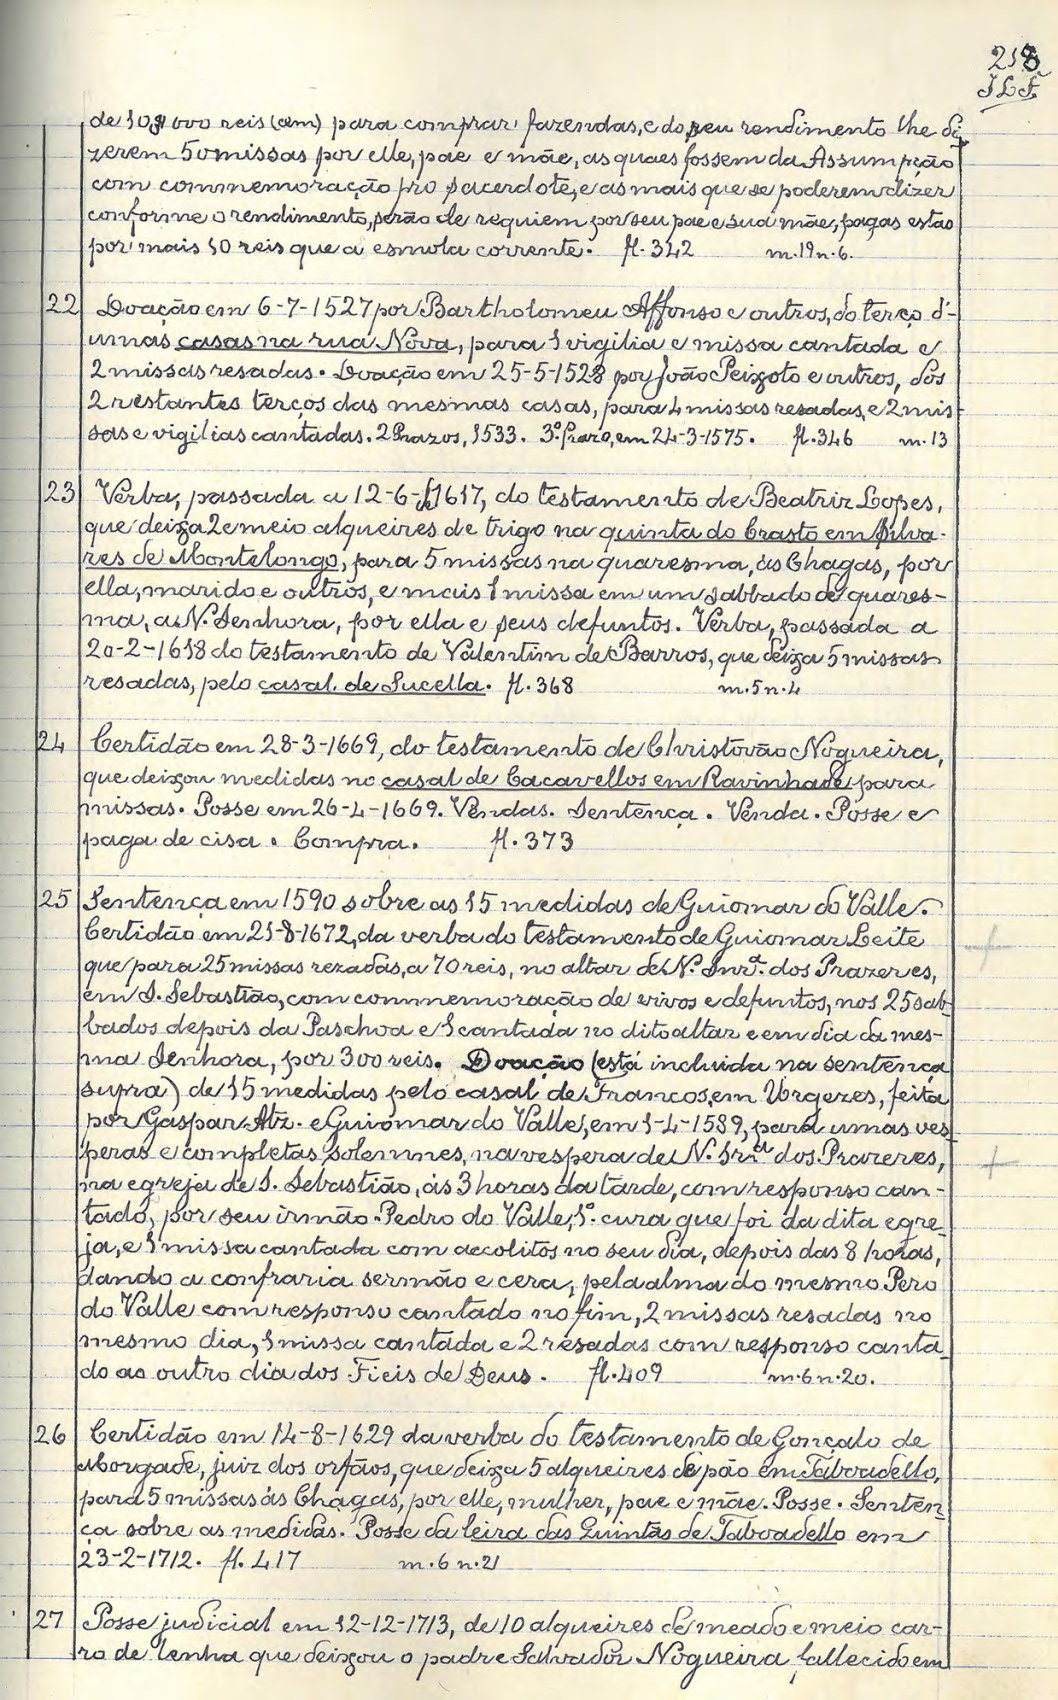 218
J L F.
de 10$000 reis (cem) para comprar fazendas, e do seu rendimento lhe di
zerem 50 missas por elle, pae e mãe, as quaes fossem da Assumpção
com commemoração pro sacerdote, e as mais que se poderem dizer
conforme o rendimento, serão de requiem por seu pae e sua mãe, pagas estas
por mais 10 reis que a esmola corrente. fl. 342 m. 19 n. 6.
22 Doação em 6-7-1527 por Bartholomeu Affonso e outros, do terço d'-
umas casas na rua Nova, para 1 vigilia e missa cantada e
2 missas resadas. Doação em 25-5-1528 por João Peixoto e outros, dos
2 restantes terços das mesmas casas, para 4 missas resadas, e 2 mis-
sas e vigilias cantadas. 2 Prazos, 1533. 3.º Prazo, em 24-3-1575. fl. 346 m. 13
23 Verba, passada a 12-6-1617, do testamento de Beatriz Lopes,
que deixa 2 e meio alqueires de trigo na quinta do Crasto em Silva-
res de Montelongo, para 5 missas na quaresma, ás Chagas, por
ella, marido e outros, e mais 1 missa em um sabbado de quares-
ma, a N. Senhora, por ella e seus defuntos. Verba, passada a
20-2-1618 do testamento de Valentim de Barros, que deixa 5 missas
resadas, pelo casal de Sucella. fl. 368 m. 5 n. 4
24 Certidão em 28-3-1669, do testamento de Christovão Nogueira,
que deixou medidas no casal de Cacavellos em Ravinhade para
missas. Posse em 26-4-1669. Vendas. Sentença. Venda. Posse e
paga de cisa. Compra. fl. 373
25 Sentença em 1590 sobre as 15 medidas de Guiomar do Valle.
Certidão em 21-8-1672, da verba do testamento de Guiomar Leite
que para 25 missas rezadas, a 70 reis, no altar de N.ª Snrª. dos Prazeres,
em S. Sebastião, com commemoração de vivos e defuntos, nos 25 sab-
bados depois da Paschoa e 1 cantada no dito altar e em dia da mes-
ma Senhora, por 300 reis. Doação (está incluida na sentença
supra) de 15 medidas pelo casal de Francos, em Urgezes, feita
por Gaspar Alz. e Guiomar do Valle, em 1-4-1589, para umas ves
peras e completas solemnes, na vespera de N.ª Snrª dos Prazeres,
na egreja de S. Sebastião, ás 3 horas da tarde, com responso can-
tado, por seu irmão Pedro do Valle, 1.º cura que foi da dita egre
ja, e 1 missa cantada com accolitos no seu dia, depois das 8 horas,
dando a confraria sermão e cera, pela alma do mesmo Pero
do Valle com responso cantado no fim, 2 missas resadas no
mesmo dia, 1 missa cantada e 2 resadas com responso canta-
do ao outro dia dos Fieis de Deus. fl. 409 m. 6 n. 20.
26 Certidão em 14-8-1629 da verba do testamento de Gonçalo de
Morgade, juiz dos orfãos, que deixa 5 alqueires de pão em Taboadello,
para 5 missas ás Chagas, por elle, mulher, pae e mãe. Posse. Senten
ça sobre as medidas. Posse da leira das Quintãs de Taboadello em
23-2-1712. fl. 417 m. 6 n. 21
27 Posse judicial em 12-12-1713, de 10 alqueires de meado e meio car-
ro de lenha que deixou o padre Salvador Nogueira, fallecido em